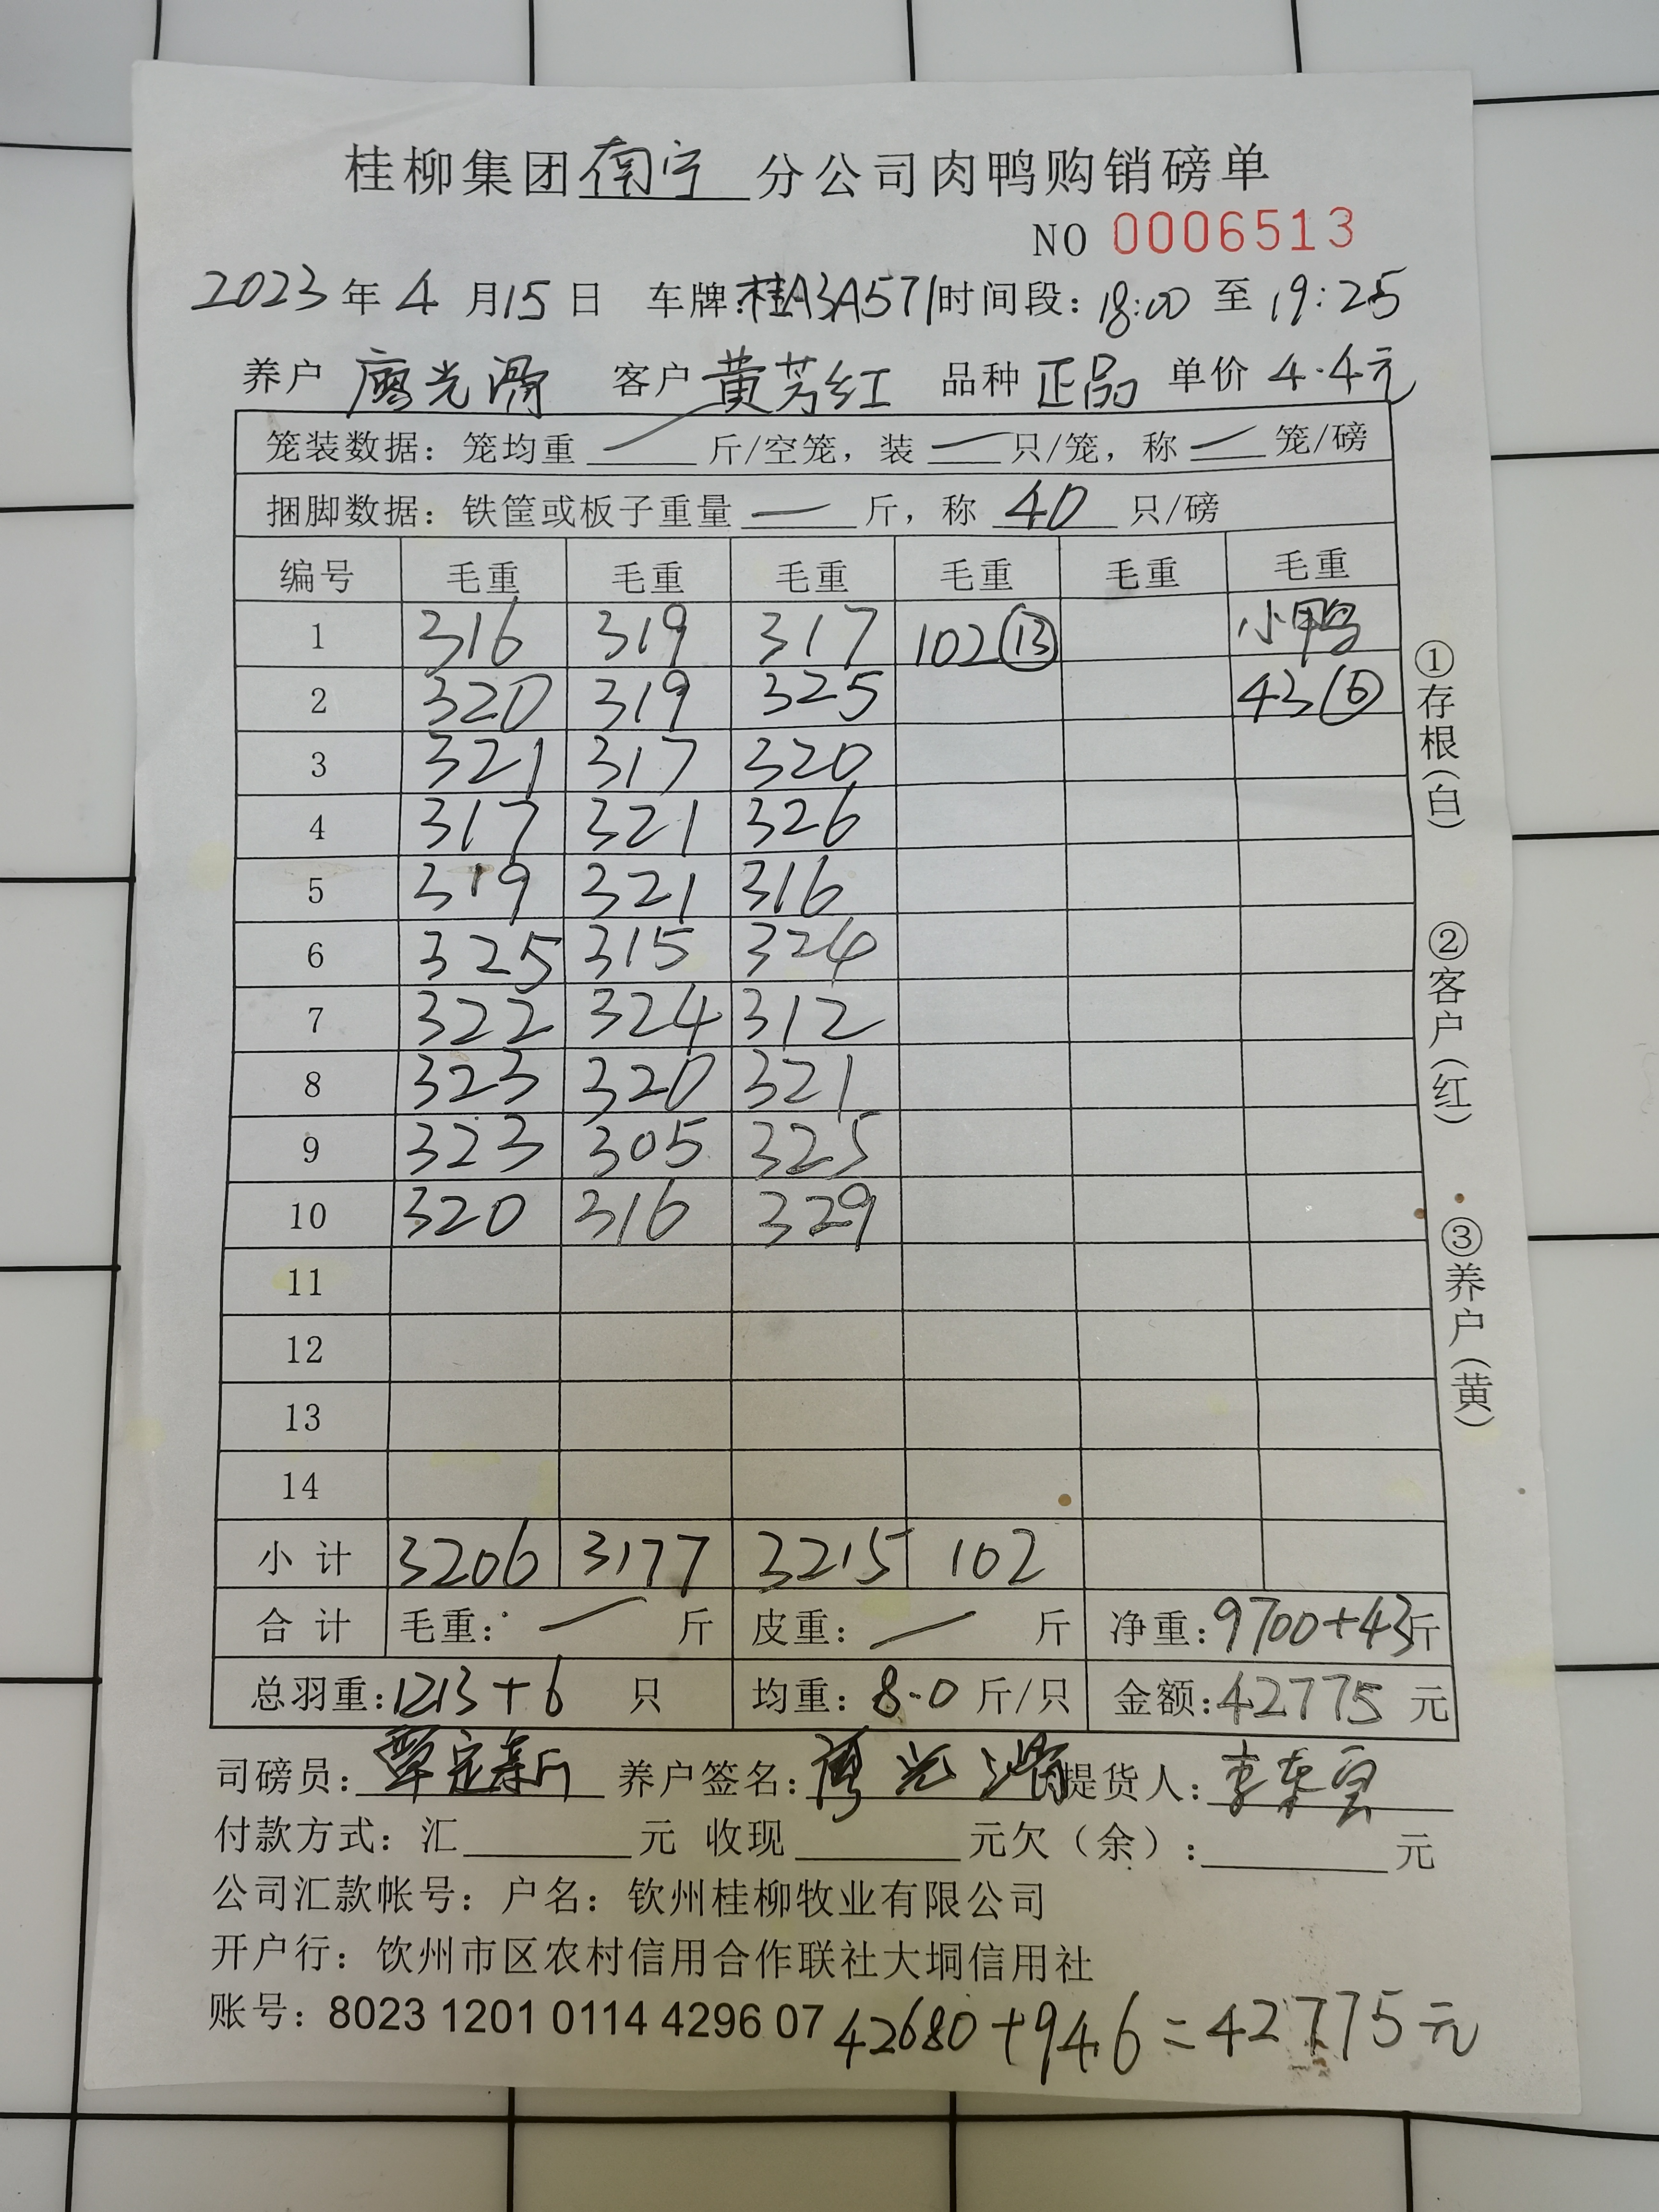 桂柳集团南宁分公司肉鸭购销磅单
NO 0006513
2023年4月15日 车牌:桂A3A571 时间段:18:00至19:25
养户 廖光滑 客户 黄芳红 品种 正品 单价 4.4元
笼装数据：笼均重 — 斤/空笼，装 — 只/笼，称 — 笼/磅
捆脚数据：铁筐或板子重量 — 斤，称 40 只/磅
编号 毛重 毛重 毛重 毛重 毛重 毛重
1 316 319 317 102⑬ 小鸭
2 320 319 325 43⑥
3 321 317 320
4 317 321 326
5 319 321 316
6 325 315 324
7 322 324 312
8 323 320 321
9 323 305 325
10 320 316 329
11
12
13
14
小计 3206 3177 3215 102
合计 毛重：— 斤 皮重：— 斤 净重:9700+43斤
总羽重:1213+6 只 均重：8.0 斤/只 金额:42775 元
①存根(白) ②客户(红) ③养户(黄)
司磅员： 养户签名： 提货人：
付款方式：汇 元 收现 元欠（余）: 元
公司汇款帐号：户名：钦州桂柳牧业有限公司
开户行：钦州市区农村信用合作联社大垌信用社
账号：8023 1201 0114 4296 07
42680+94.6=42775元